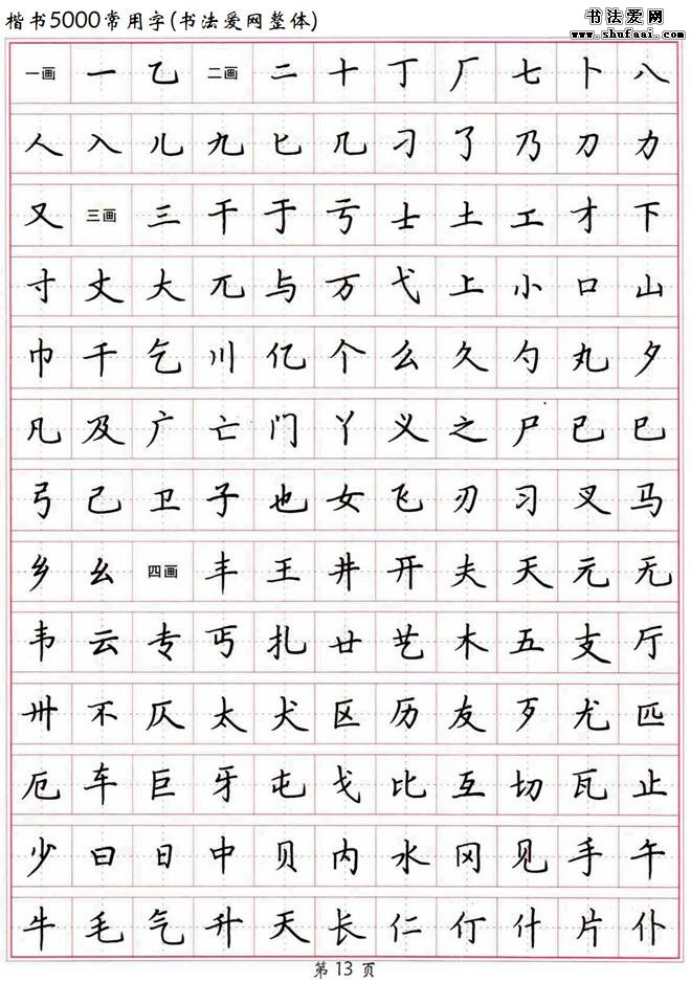 楷书5000常用字(书法爱网整体)
书法爱网
www.shufaai.com
一画 一 乙 二画 二 十 丁 厂 七 卜 八
人 入 儿 九 匕 几 刁 了 乃 刀 力
又 三画 三 干 于 亏 士 土 工 才 下
寸 丈 大 兀 与 万 弋 上 小 口 山
巾 千 乞 川 亿 个 么 久 勺 丸 夕
凡 及 广 亡 门 丫 义 之 尸 已 巳
弓 己 卫 子 也 女 飞 刃 习 叉 马
乡 幺 四画 丰 王 井 开 夫 天 元 无
韦 云 专 丐 扎 廿 艺 木 五 支 厅
卅 不 仄 太 犬 区 历 友 歹 尤 匹
厄 车 巨 牙 屯 戈 比 互 切 瓦 止
少 曰 日 中 贝 内 水 冈 见 手 午
牛 毛 气 升 夭 长 仁 仃 什 片 仆
第 13 页